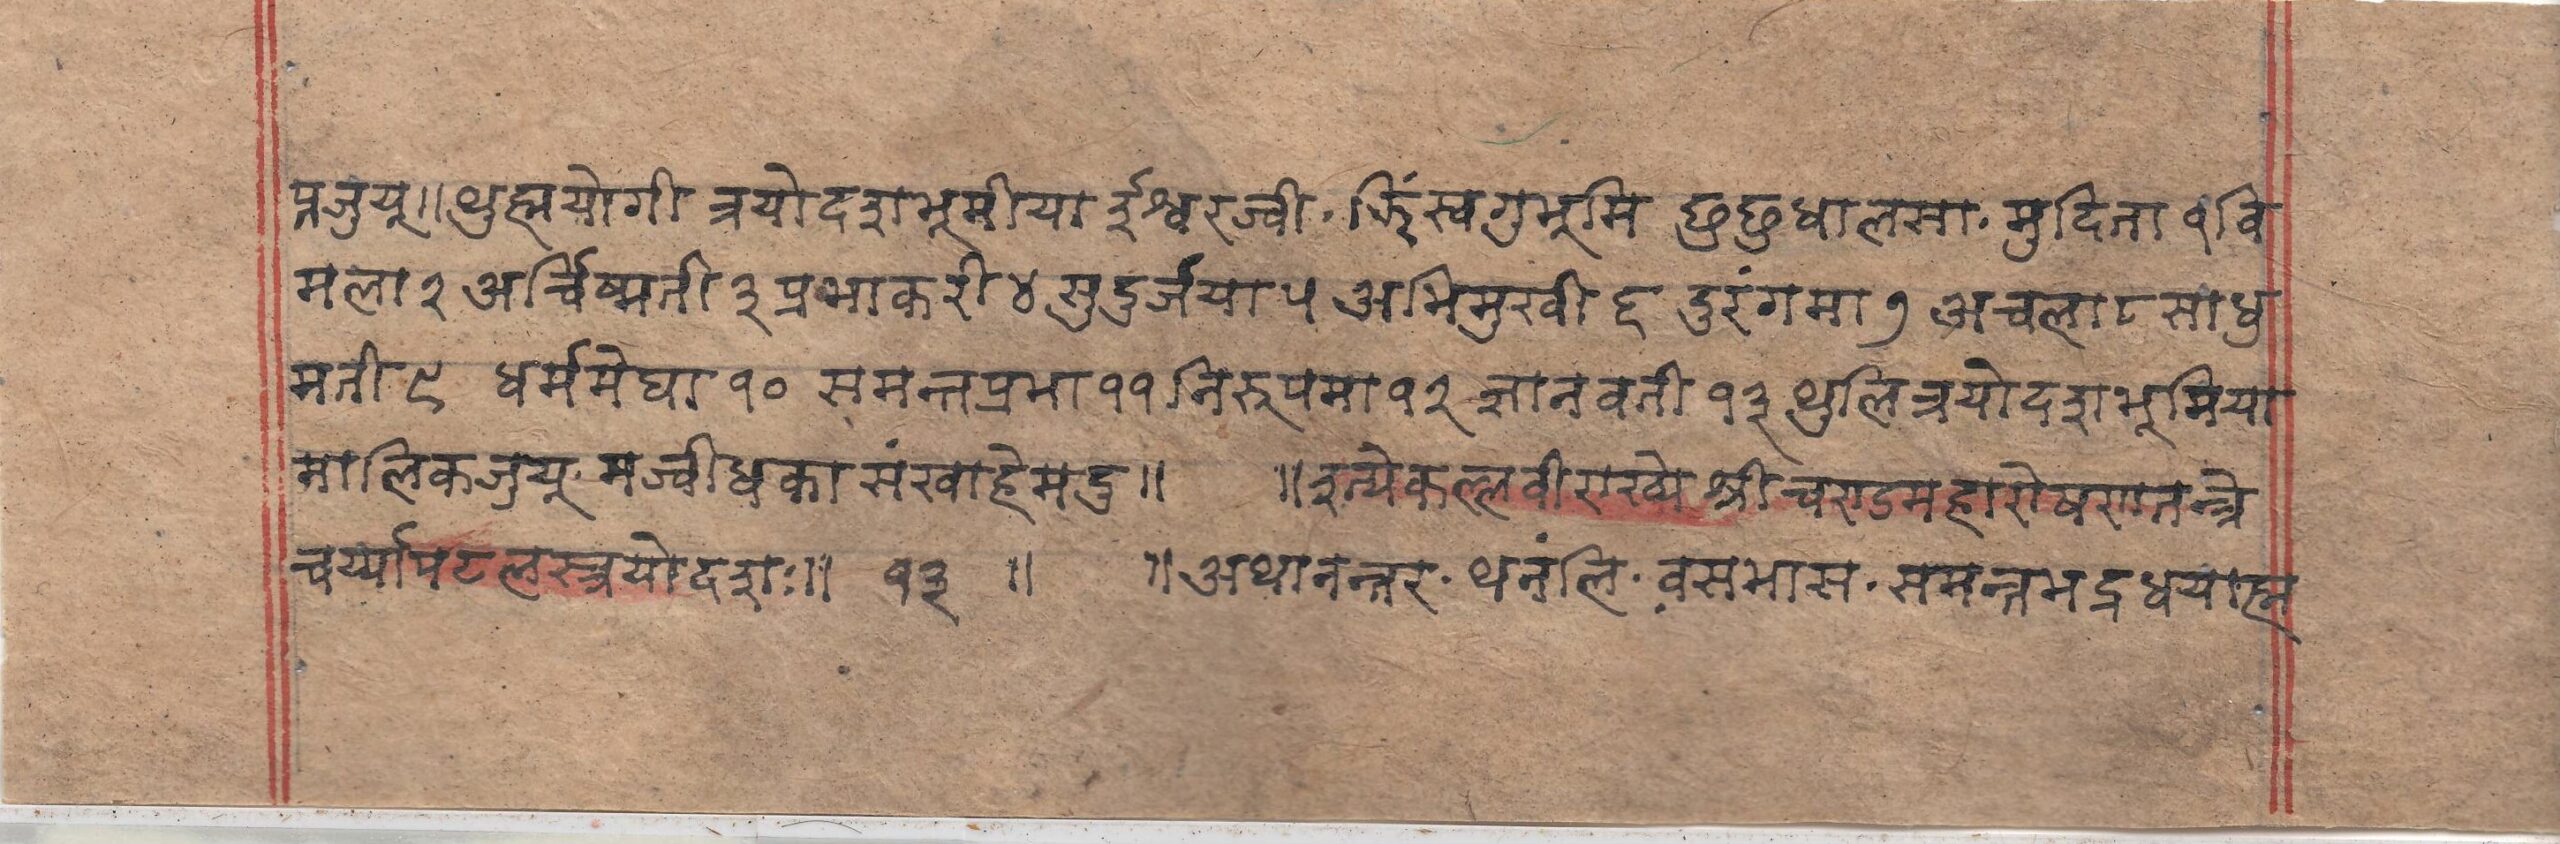 प्नजुयू॥थुह्मयोगी त्रयोदशभूमीया ईश्वरज्वी॰ झिंस्वगुभूमि छुछुधालसा॰ मुदिता १ वि
मला २ अर्चिष्मती ३ प्रभाकरी ४ सुदुर्जया ५ अभिमुखी ६ दुरंगमा ७ अचला ८ साधु
मती ९ धर्ममेघा १० समन्तप्रभा ११ निरूपमा १२ ज्ञानवती १३ थुलि त्रयोदशभूमिया
मालिकजुयू॰ मज्वीधका संखाहेमदु॥ ॥इत्येकल्लवीराख्ये श्रीचण्डमहारोषणतन्त्रे
चर्य्यापटलस्त्रयोदशः॥ १३ ॥ ॥अथानन्तर॰ थनंलि॰ वसभास॰ समन्तभद्रधयाह्म